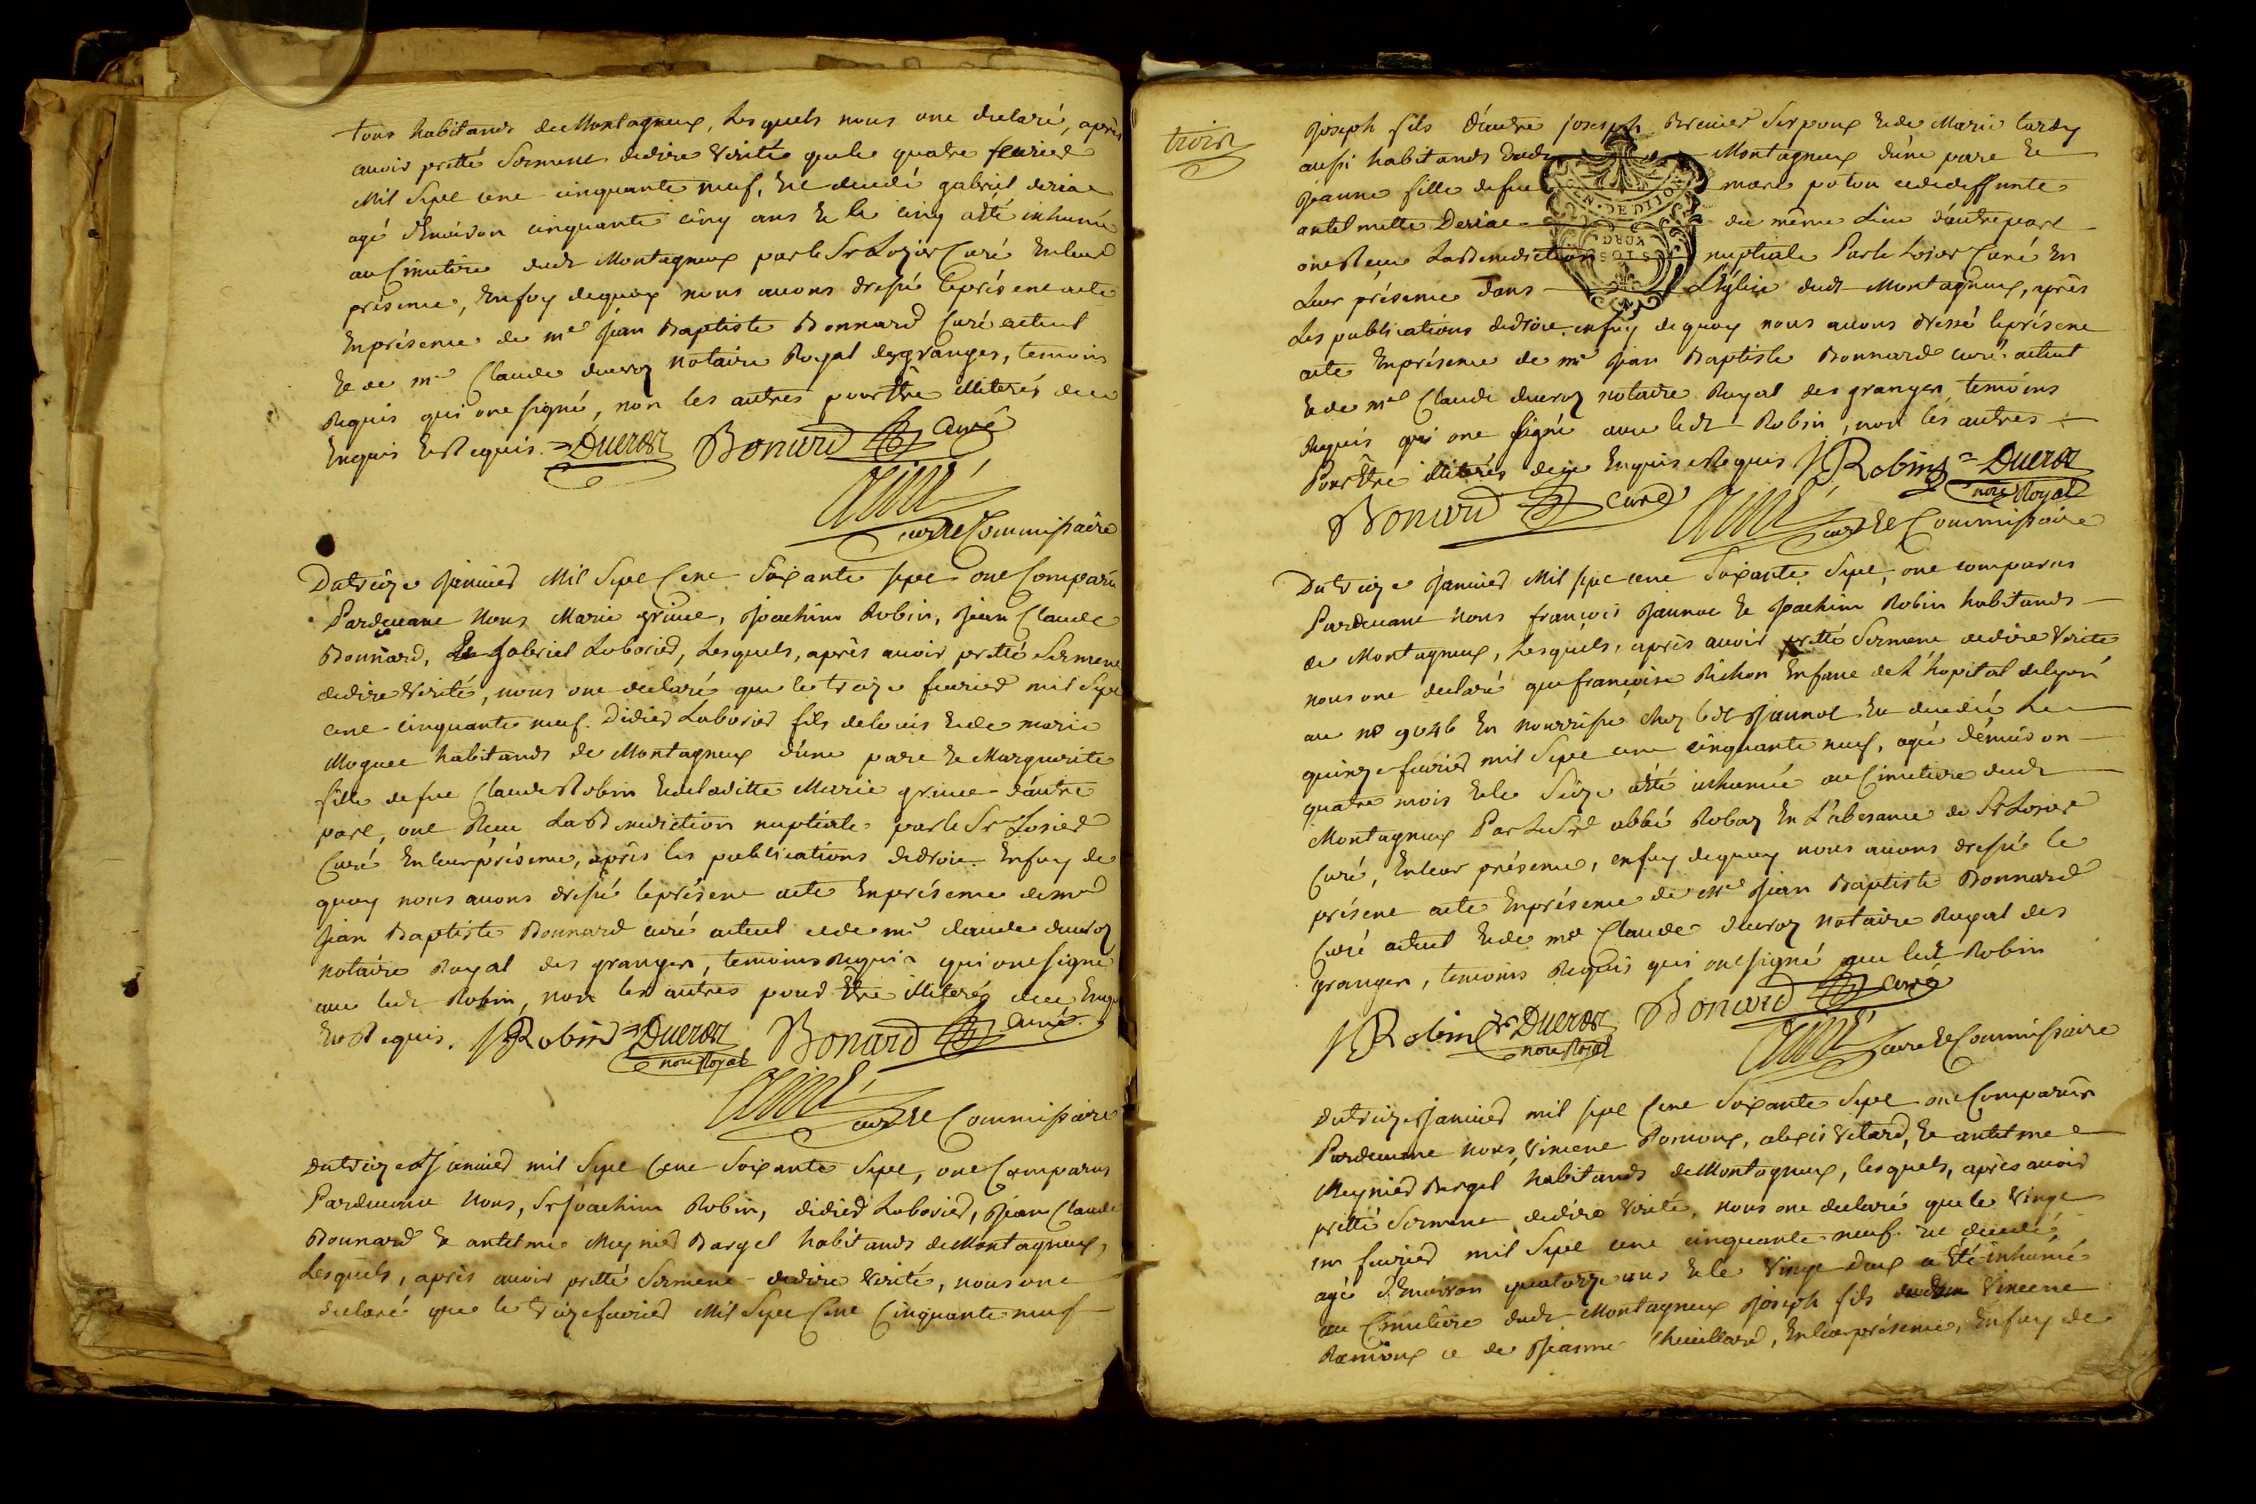 tous habitands de Montagneux, Lesquels nous ont declaré, après
avoir pretté Serment dedire Verité que le quatre fevrier
Mil Sept cent cinquante neuf, Est decedé gabriel deriat
agé d'Environ cinquante cinq ans Et le cinq a été inhumé
au Cimetiere dudt Montagneux par le Sr Lozier Curé En leur
présence, En foy de quoy nous avons dressé le présent acte
En présence de me Jean Baptiste Bonnard Curé actuel
Et de me Claude ducroz notaire Royal des granges, temoins
Requis qui ont signé, non les autres pour Etre illiterés de ce
Enquis Et Requis. Ducroz Bonard Curé
Aimé
curé Et Commissaire
Du treize Janvier Mil Sept Cent Soixante sept ont Comparu
Pardevant Nous Marie grisué, Joachim Robin, Jean Claude
Bonnard, Et Gabriel Laborier, Lesquels, après avoir pretté Serment
dedire Verité, nous ont declaré que le treize fevrier mil Sept
cent cinquante neuf. Didier Laborier fils de louis Et de marie
Moguet habitands de Montagneux d'une part Et Marguerite
fille de feu Claude Robin Et de laditte Marie grisué d'autre
part, ont Recu La Benediction nuptiale par le Sr Losier
Curé En leur présence, après les publications de droit. En foy de
quoy nous avons dressé le présent acte En présence de me
Jean Baptiste Bonnard curé actuel et de me claude ducroz
notaire Royal des granges, temoins Requis qui ont signé
avec ledt Robin, non les autres pour Etre illiterés de ce Enquis
Et Requis. J Robin Ducroz Bonard Curé
nore Royal
Aimé
curé Et Commissaire
Du treize Janvier mil Sept Cent Soixante Sept, ont Comparus
Pardevant Nous, Sr Joachim Robin, didier Laborier, Jean Claude
Bonnard Et antelme Meynier Bargel habitands de Montagneux,
Lesquels, après avoir pretté Serment dedire Verité, nous ont
declaré que le treize fevrier Mil Sept Cent Cinquante neuf
trois
Joseph fils d'autre joseph Et de Marie tardy
aussi habitands dudt Montagneux d'une part Et
Jeanne fille de feu marc poton et de deffunte
antelmette Deriat du même Lieu d'autre part
DE DIJON
ont Recu La Benediction nuptiale Par le Losier Curé En
SOLS
Leur présence dans L'Eglise dudt Montagneux, après
Les publications de droit. en foy de quoy nous avons dressé le présent
acte En présence de me Jean Baptiste Bonnard curé actuel
Et de me Claude ducroz notaire Royal des granges, temoins
Requis qui ont signé avec ledt Robin, non les autres
Pour Etre illiterés de ce Enquis et Requis J Robin Ducroz
nore Royal
Bonard curé Aimé curé Et Commissaire
Du treize Janvier Mil sept cent Soixante Sept, ont comparus
Pardevant Nous françois Jaunot Et Joachim Robin habitands
de Montagneux, Lesquels, après avoir pretté Serment dedire Verité
nous ont declaré que françoise Richon Enfant de L'hopital de lyon
au no 9046 En nourrisse chez ledt Jaunot Est decedée Le
quinze fevrier mil Sept cent cinquante neuf, agée d'environ
quatre mois Et le Seize a été inhumée au Cimetiere dudt
Montagneux Par Le Sr abbé Robaz En L'absance de Sr Losier
Curé, En leur présence, en foy de quoy nous avons dressé le
présent acte En présence de Me Jean Baptiste Bonnard
Curé actuel Et de me Claude ducroz notaire Royal des
granges, temoins Requis qui ont signé avec ledt Robin
J Robin Ducroz Bonard curé
nore Royal Aimé curé Et Commissaire
Du treize Janvier mil sept Cent Soixante Sept ont Comparus
Pardevant Nous, Vincent Ramoux, alexis Velard, Et antelme
Meynier Bargel habitands de Montagneux, lesquels, après avoir
pretté Serment dedire Verité, nous ont declaré que le Vingt
un fevrier mil Sept cent cinquante neuf. Est decedé,
agé d'Environ quatorze ans Et le Vingt deux a Eté inhumé
au Cimetiere dudt Montagneux Joseph fils dudt Vincent
Ramoux et de Jeanne, En leur présence, En foy de